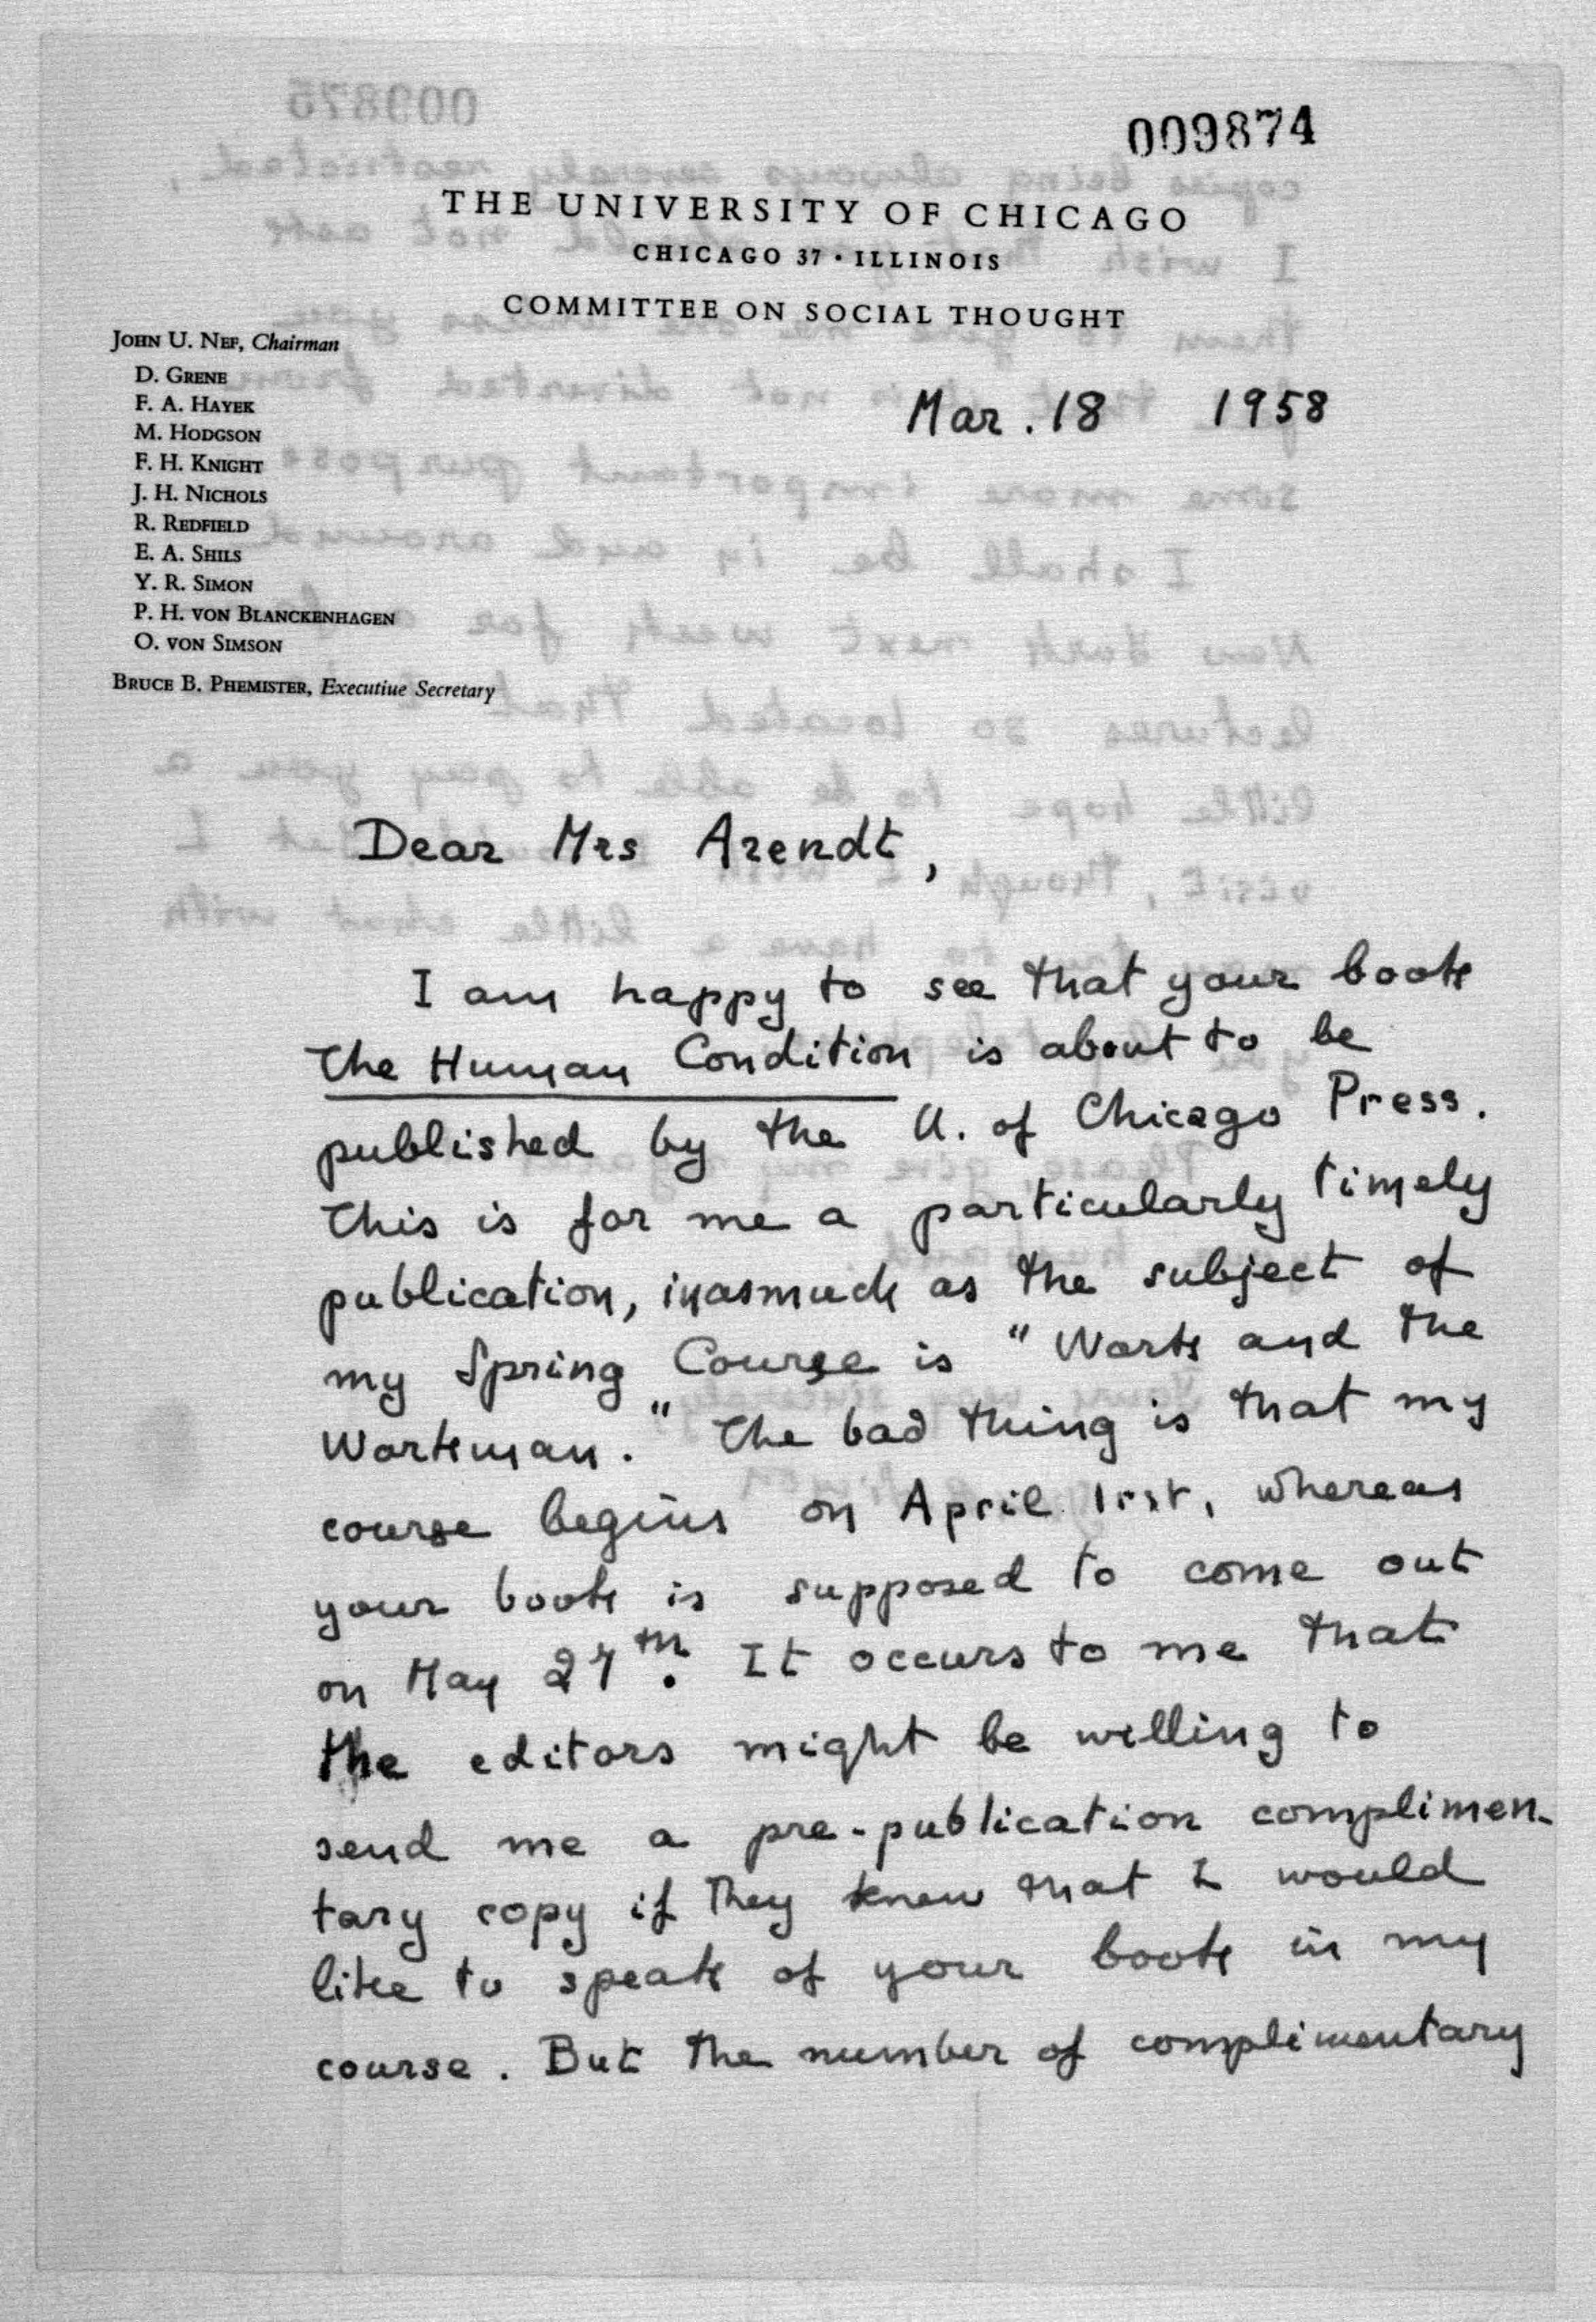 009874
THE UNIVERSITY OF CHICAGO
CHICAGO 37 · ILLINOIS
COMMITTEE ON SOCIAL THOUGHT
JOHN U. NEF, Chairman
D. GRENE
F. A. HAYEK
M. HODGSON
F. H. KNIGHT
J. H. NICHOLS
R. REDFIELD
E. A. SHILS
Y. R. SIMON
P. H. VON BLANCKENHAGEN
O. VON SIMSON
BRUCE B. PHEMISTER, Executive Secretary
Mar. 18 1958
Dear Mrs Arendt,
I am happy to see that your book
The Human Condition is about to be
published by the U. of Chicago Press.
This is for me a particularly timely
publication, inasmuch as the subject of
my Spring Course is "Work and the
Workman." The bad thing is that my
course begins on April 1rst, whereas
your book is supposed to come out
on May 27th. It occurs to me that
the editors might be willing to
send me a pre-publication complimen-
tary copy if they knew that I would
like to speak of your book in my
course. But the number of complimentary